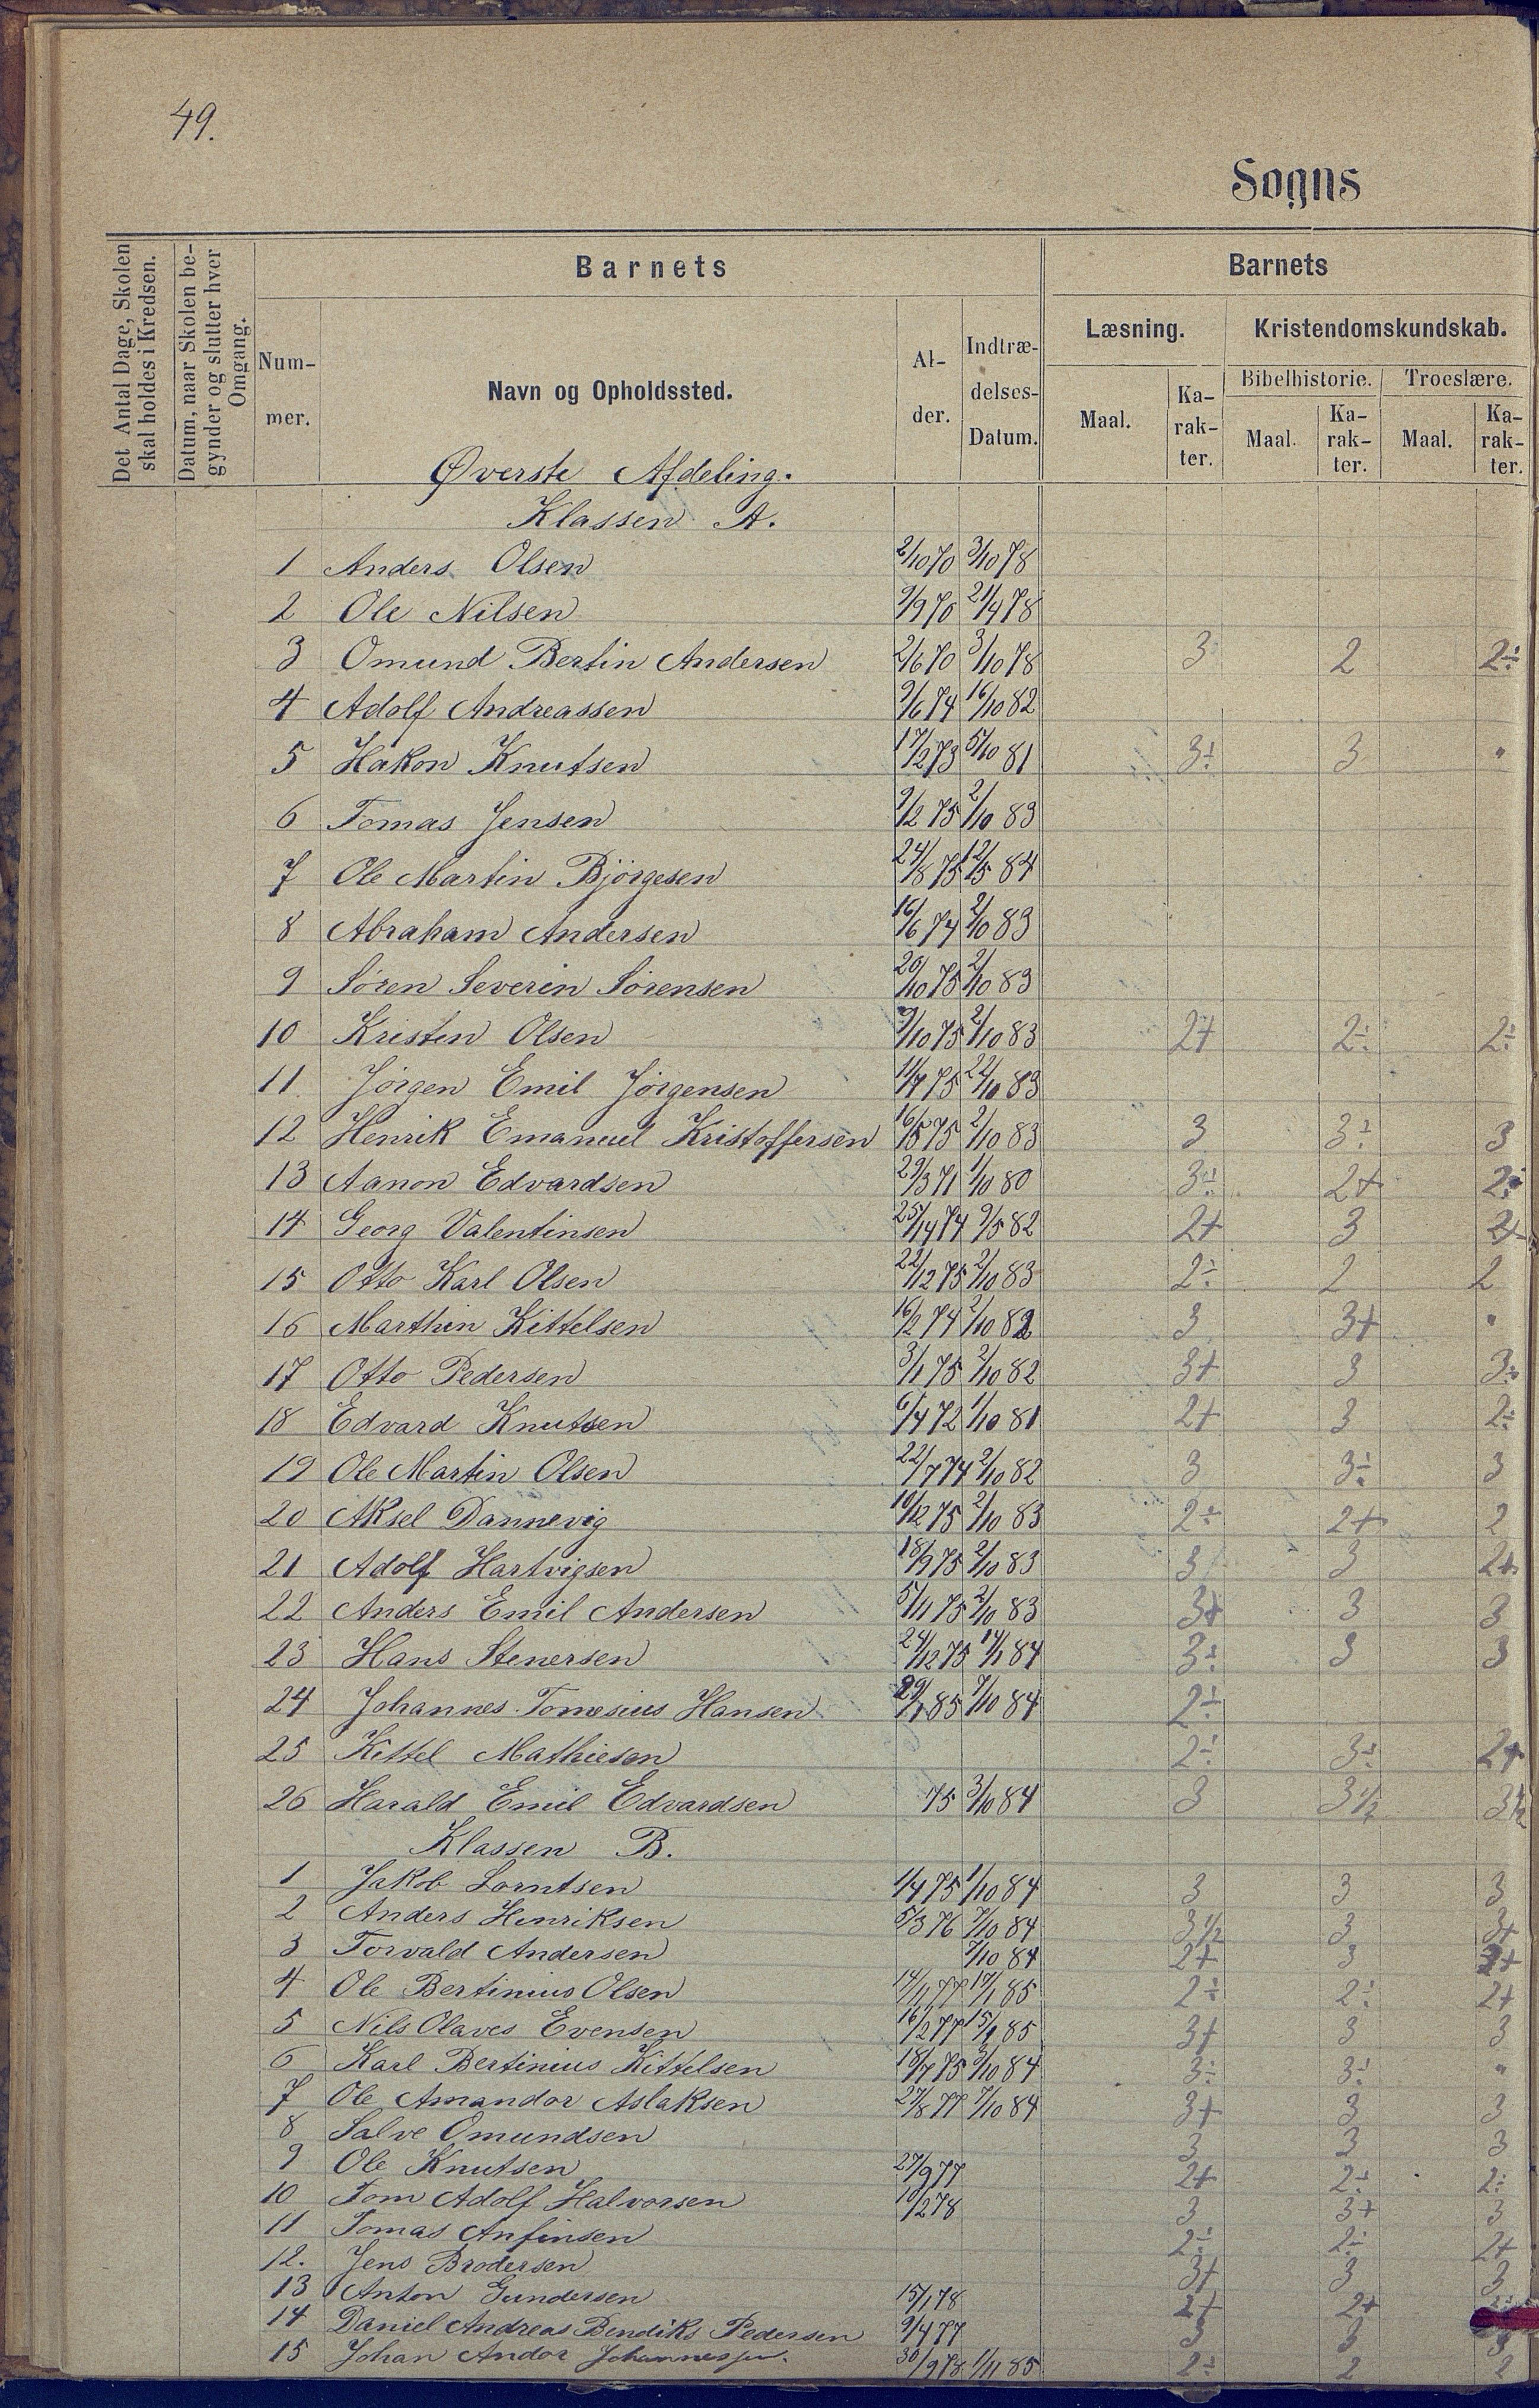 49.
Sogns
Det Antal Dage, Skolen skal holdes i Kredsen.
Datum, naar Skolen begynder og slutter hver Omgang.
Barnets
Barnets
Nummer.
Navn og Opholdssted.
Alder.
Indtrædelses-Datum.
Læsning.
Kristendomskundskab.
Bibelhistorie.
Troeslære.
Maal.
Karakter.
Maal.
Karakter.
Maal.
Karakter.
Øverste Afdeling.
Klassen A.
1 Anders Olsen 2/10 70 3/10 78
2 Ole Nilsen 9/9 70 21/9 78
3 Omund Bertin Andersen 2/6 70 3/10 78 3 2 2÷
4 Adolf Andreassen 9/6 74 16/10 82
5 Hakon Knutsen 17/2 73 5/10 81 3÷ 3 "
6 Tomas Jensen 9/2 75 2/10 83
7 Ole Martin Bjørgesen 24/8 75 12/5 84
8 Abraham Andersen 16/6 74 2/10 83
9 Søren Severin Sørensen 20/10 75 2/10 83
10 Kristen Olsen 9/10 75 2/10 83 2+ 2÷ 2÷
11 Jørgen Emil Jørgensen 11/7 75 22/10 83
12 Henrik Emanuel Kristoffersen 16/5 75 2/10 83 3 3÷ 3
13 Aanon Edvardsen 29/3 71 1/10 80 3÷ 2+ 2÷
14 Georg Valentinsen 74 9/5 82 2+ 3 2+
15 Otto Karl Olsen 22/12 75 2/10 83 2÷ 2 2
16 Marthin Kittelsen 16/2 74 2/10 82 3 3+ "
17 Otto Pedersen 3/1 75 2/10 82 3+ 3 3÷
18 Edvard Knutsen 6/4 72 1/10 81 2+ 3 2÷
19 Ole Martin Olsen 22/7 74 2/10 82 3 3÷ 3
20 Aksel Dannevig 10/12 75 2/10 83 2÷ 2+ 2
21 Adolf Hartvigsen 18/9 75 2/10 83 3 3 2+
22 Anders Emil Andersen 5/11 75 2/10 83 3+ 3 3
23 Hans Stenersen 24/12 75 14/1 84 3÷ 3 3
24 Johannes Tomesius Hansen 85 7/10 84 2÷
25 Kittel Mathiesen 2÷ 3÷ 2+
26 Harald Emil Edvardsen 75 3/10 84 3 3½ 3½
Klassen B.
1 Jakob Lorntsen 1/4 75 1/10 84 3 3 3
2 Anders Henriksen 5/3 76 7/10 84 3½ 3 3+
3 Torvald Andersen 7/10 84 2+ 3 2+
4 Ole Bertinius Olsen 14/1 77 17/1 85 2÷ 2÷ 2+
5 Nils Olaves Evensen 16/2 77 15/1 85 3+ 3 3
6 Karl Bertinius Kittelsen 18/7 75 3/10 84 3÷ 3÷ "
7 Ole Amandor Aslaksen 27/8 77 7/10 84 3+ 3 3
8 Salve Omundsen 3 3 3
9 Ole Knutsen 27/9 77 2+ 2÷ 2÷
10 Tom Adolf Halvorsen 10/2 78 3 3+ 3
11 Tomas Anfinsen 2÷ 2÷ 2+
12. Jens Brodersen 3+ 3 3
13 Anton Gundersen 15/1 78 2+ 2+
14 Daniel Andreas Bendiks Pedersen 9/4 77 3 3 3
15 Johan Andor Johannessen. 30/9 78 1/11 85 2÷ 2 2